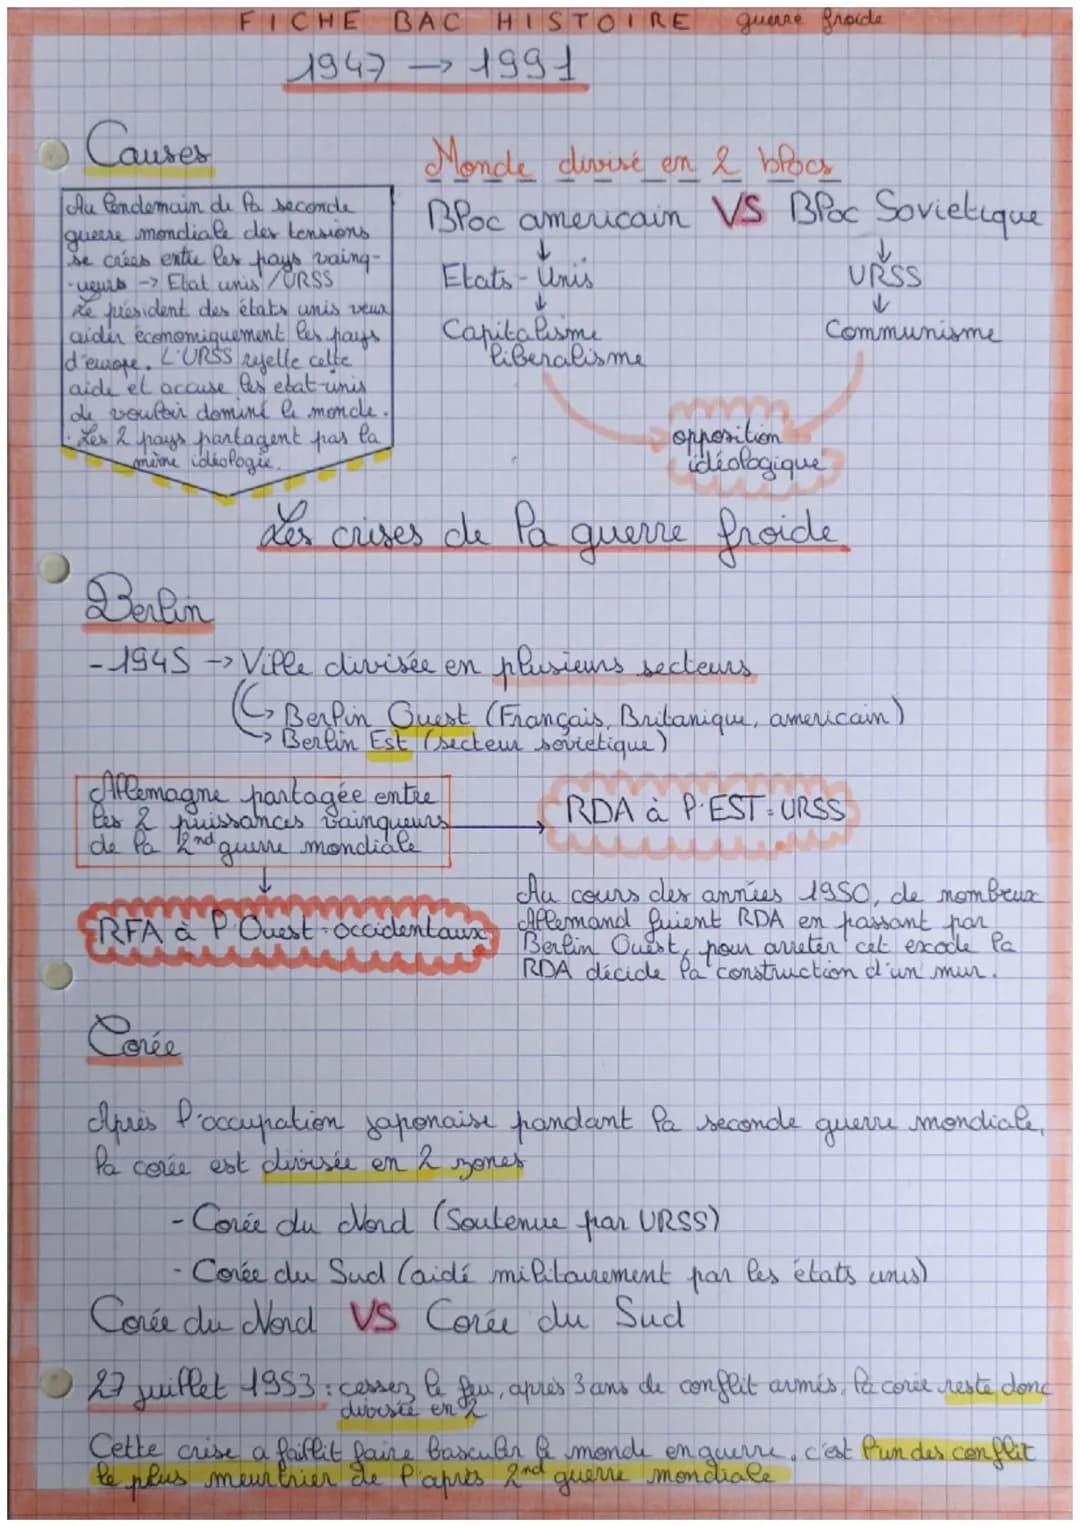 FICHE BAC HISTOIRE guerre froide
1947 → 1991
Causes
Au lendemain de la seconde
guerre mondiale des tensions
se crées entre les pays vainq-
-ueurs -> Etat unis / URSS
Le président des états unis veux
aider économiquement les pays
d'europe. L'URSS rejette cette
aide et accuse les etat-unis
de vouloir dominé le monde.
Les 2 pays partagent pas la
même idéologie.
Monde divisé en 2 blocs
Bloc americain VS Bloc Sovietique
↓ ↓
Etats-Unis URSS
↓ ↓
Capitalisme Communisme
liberalisme
opposition
idéologique
Les crises de la guerre froide
Berlin
- 1945 -> Ville divisée en plusieurs secteurs
-> Berlin Ouest (Français, Britanique, americain)
-> Berlin Est (secteur soviétique)
Allemagne partagée entre
les 2 puissances vainqueurs
de la 2nd guerre mondiale
RDA à l'EST = URSS
RFA à l'Ouest = occidentaux
Au cours des années 1950, de nombreux
Allemand fuient RDA en passant par
Berlin Ouest, pour arreter cet exode la
RDA décide la construction d'un mur.
Corée
Après l'occupation japonaise pandant la seconde guerre mondiale,
la corée est divisée en 2 zones
- Corée du Nord (Soutenue par URSS)
- Corée du Sud (aidé militairement par les états unis)
Corée du Nord VS Corée du Sud
27 juillet 1953 : cessez le feu, après 3 ans de conflit armés, la corée reste donc
divisée en 2
Cette crise a faillit faire basculer le monde en guerre, c'est l'un des conflit
le plus meurtrier de l'après 2nd guerre mondiale